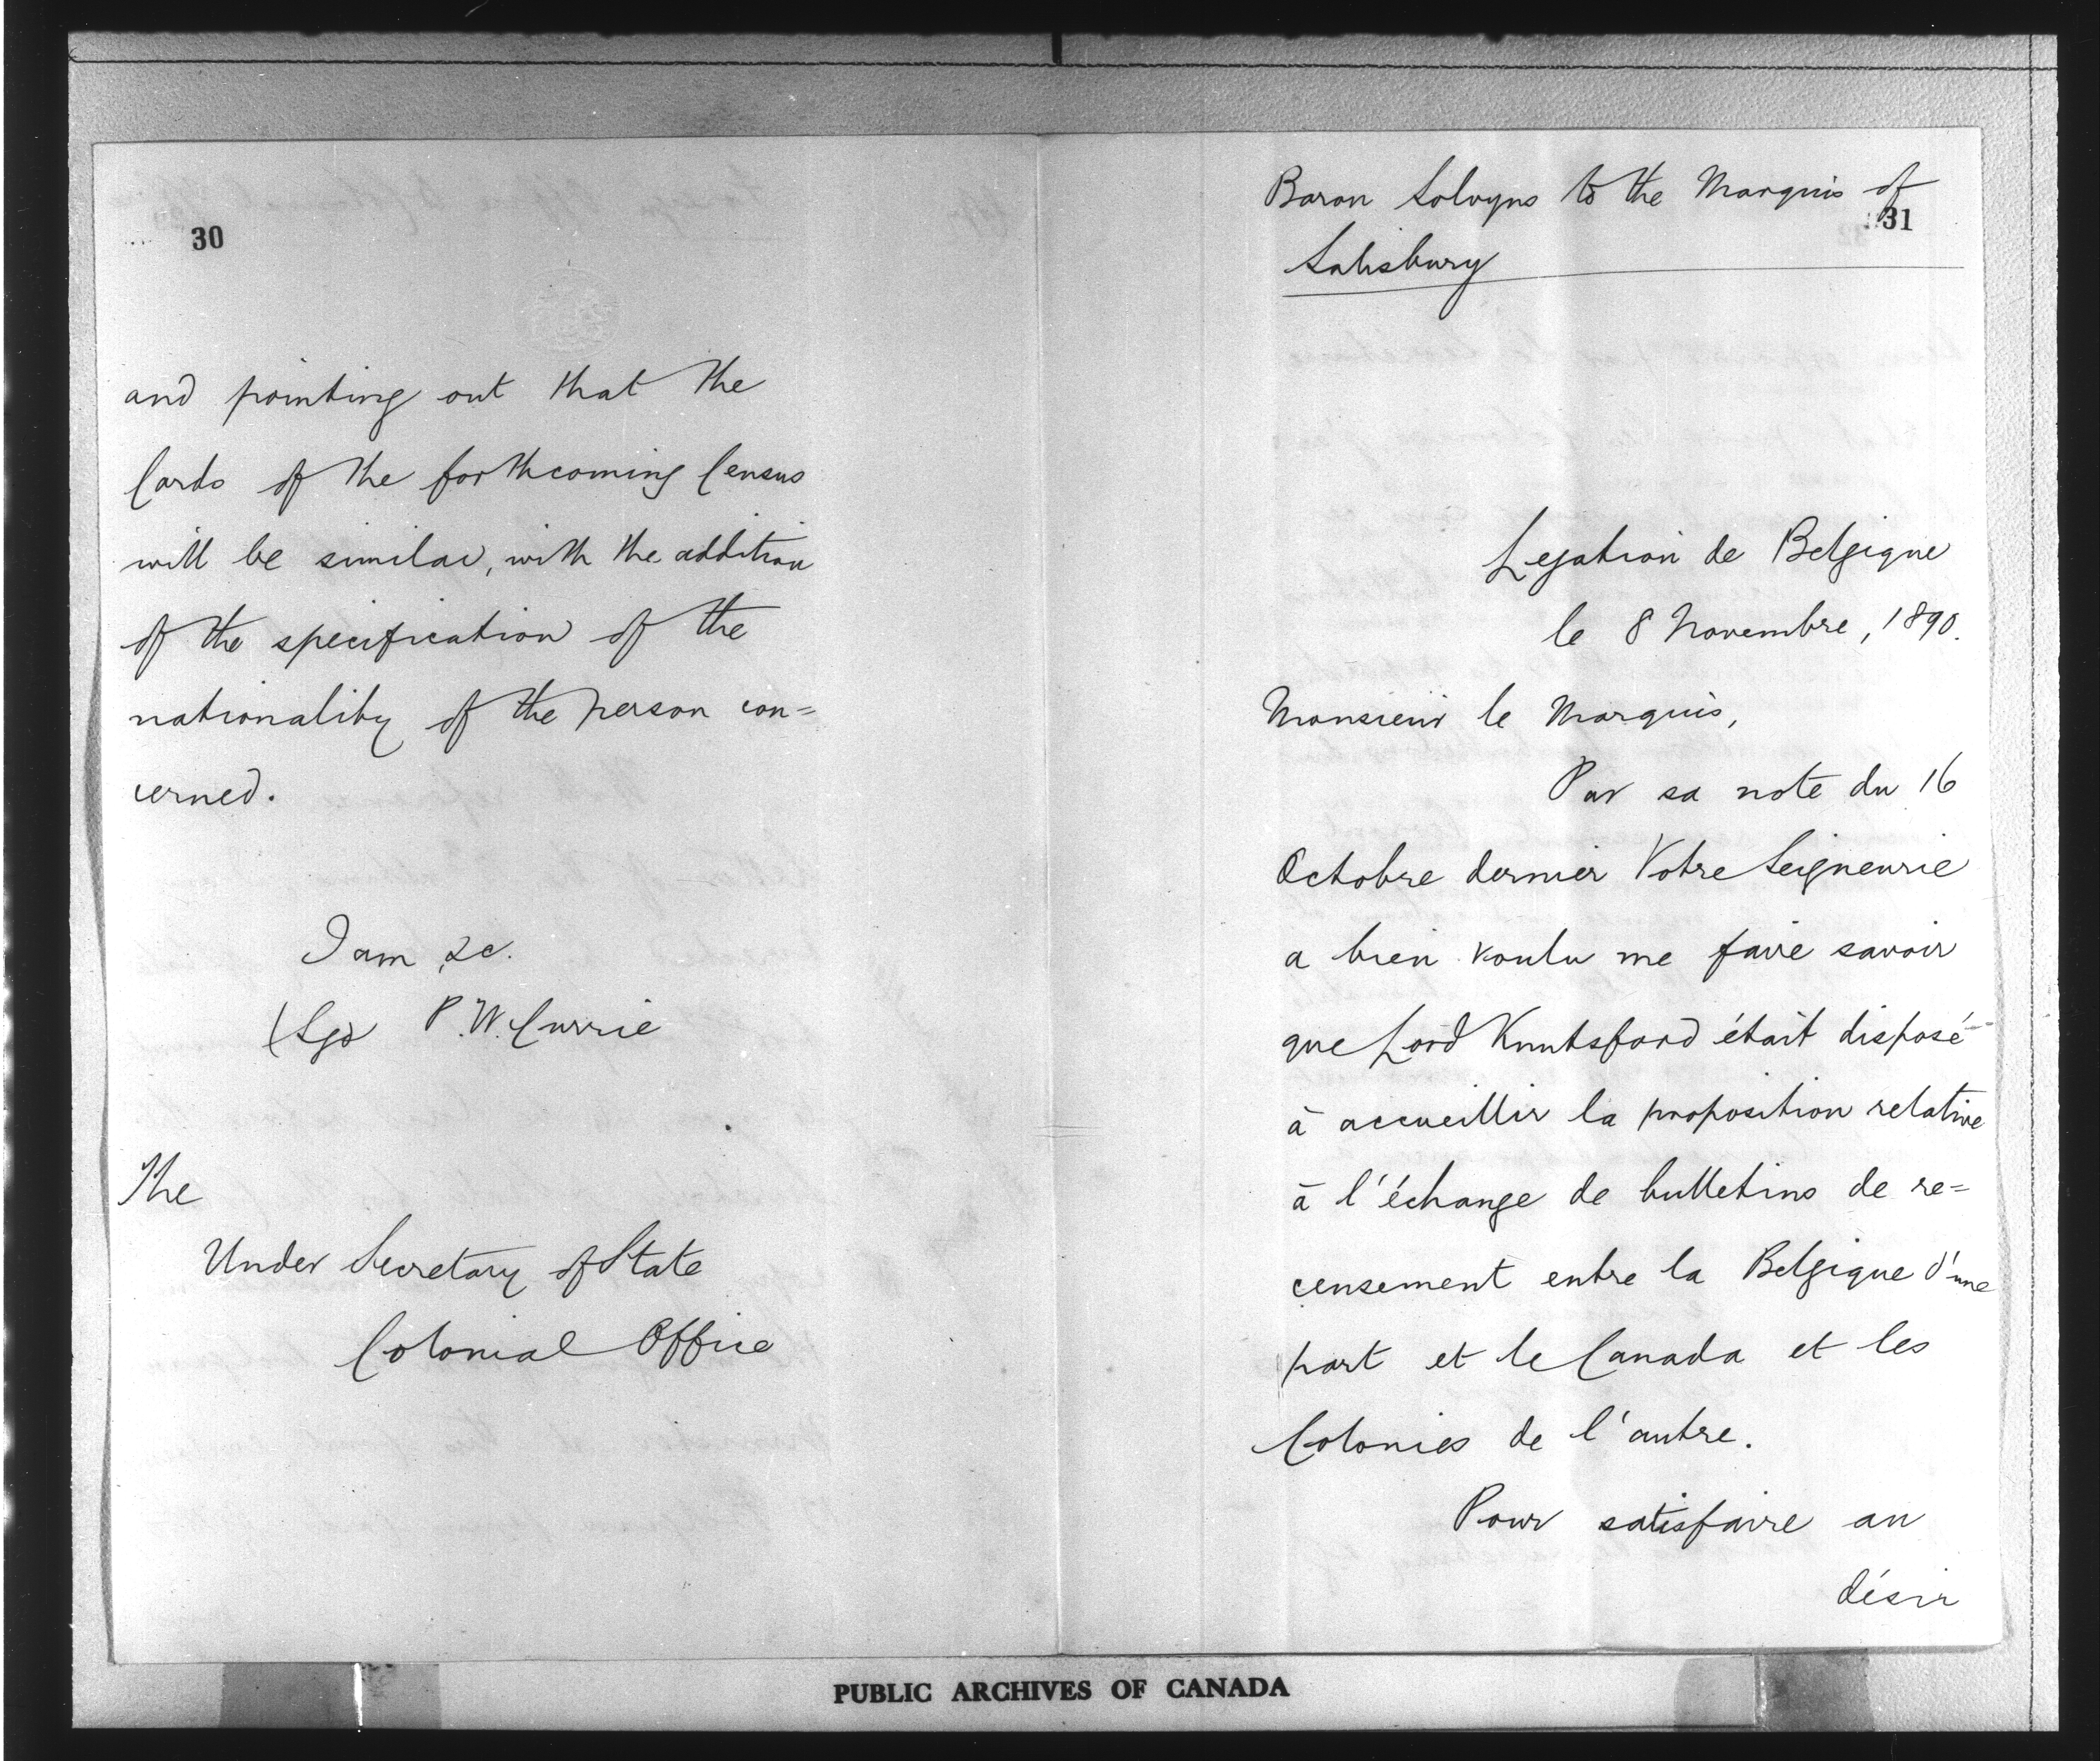 30
and pointing out that the
Cards of the forthcoming Census
will be similar, with the addition
of the specification of the
nationality of the person con=
cerned.
I am, &c.
(Sgd P. W. Currie
The
Under Secretary of State
Colonial Office
Baron Solvyns to the Marquis of
31
Salisbury
Legation de Belgique
le 8 Novembre, 1890.
Monsieur le Marquis,
Par sa note du 16
Octobre dernier Votre Seigneurie
a bien voulu me faire savoir
que Lord Knutsford était disposé
à accueillir la proposition relative
à l'échange de bulletins de re=
censement entre la Belgique d'une
part et le Canada et les
Colonies de l'autre.
Pour satisfaire au
désir
PUBLIC ARCHIVES OF CANADA